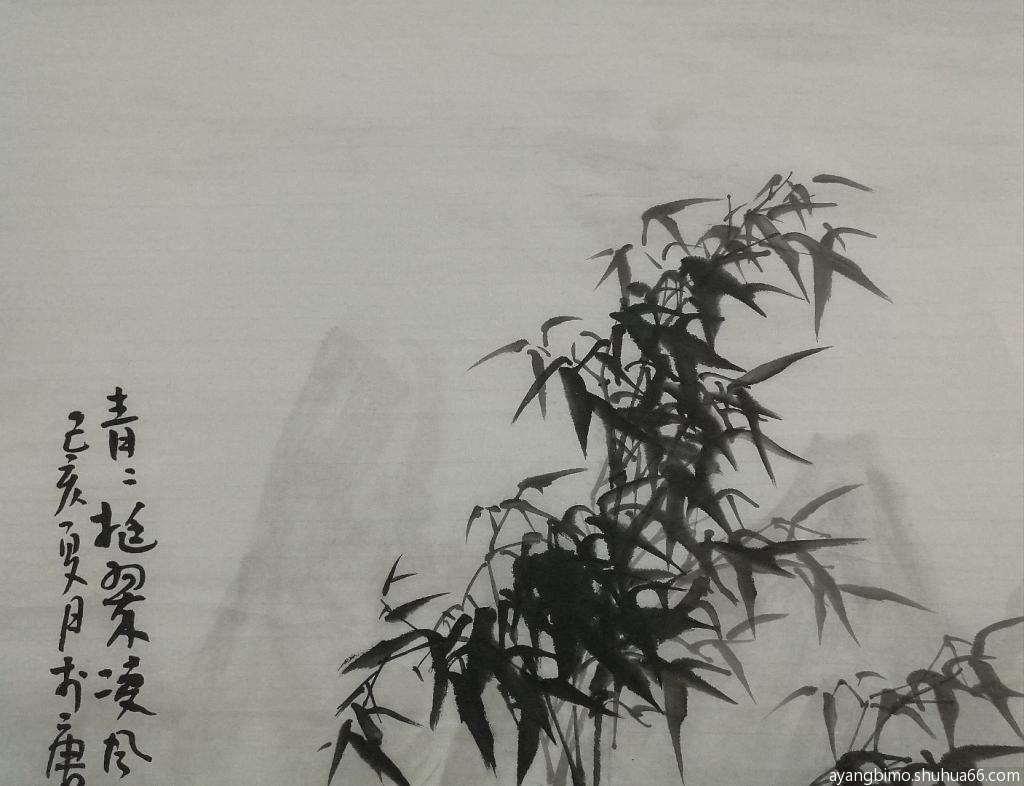 青〻挺翠凌风
己亥夏月于唐
ayangbimo.shuhua66.com